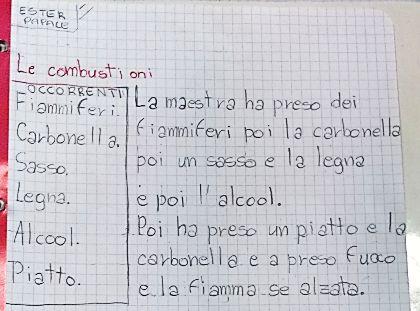 ESTER
PAPALE
Le combustioni
OCCORRENTI
Fiammiferi.
Carbonella.
Sasso.
Legna.
Alcool.
Piatto.
La maestra ha preso dei
fiammiferi poi la carbonella
poi un sasso e la legna
e poi l'alcool.
Poi ha preso un piatto e la
carbonella e a preso fuoco
e la fiamma se alzata.